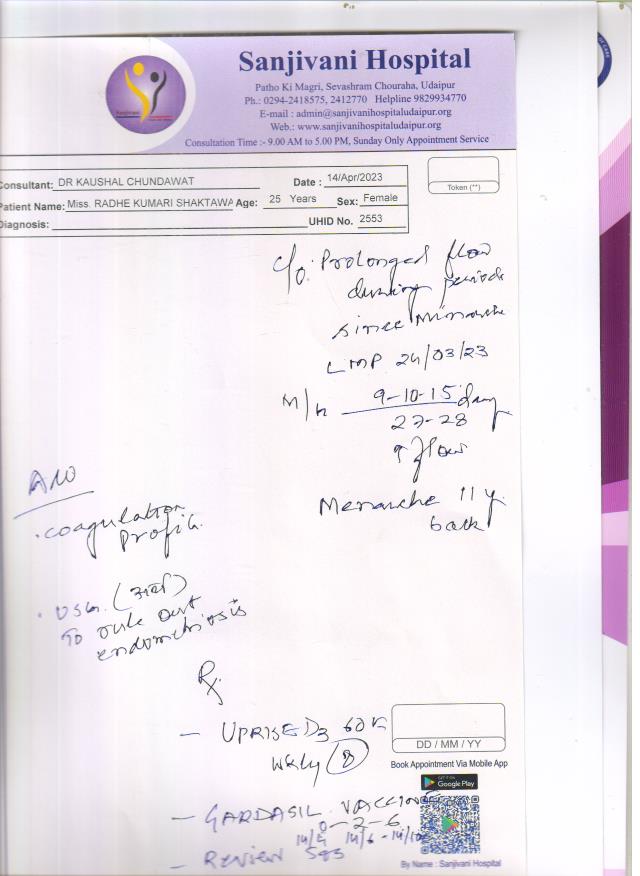 Sanjivani Hospital
Sanjivani
Patho Ki Magri, Sevashram Chouraha, Udaipur
Ph.: 0294-2418575, 2412770 Helpline 9829934770
E-mail : admin@sanjivanihospitaludaipur.org
Web.: www.sanjivanihospitaludaipur.org
Consultation Time :- 9.00 AM to 5.00 PM, Sunday Only Appointment Service
Consultant: DR KAUSHAL CHUNDAWAT Date : 14/Apr/2023
Patient Name: Miss. RADHE KUMARI SHAKTAWA Age: 25 Years Sex: Female
Diagnosis: UHID No. 2553
Token (**)
c/o. Prolonged flow
during periods
since
LMP 24/03/23
M/h 9-10-15 day
27-28
↑ flow
Menarche 11 y.
back
Adv
. coagulation
Profile.
. USG.
To rule out
endometriosis
Rx
- UPRISE D3 60K
Wkly (8)
- GARDASIL VACCINE
0-2-6
14/4 14/6 - 14/10
- Review
DD / MM / YY
Book Appointment Via Mobile App
GET IT ON
Google Play
By Name : Sanjivani Hospital